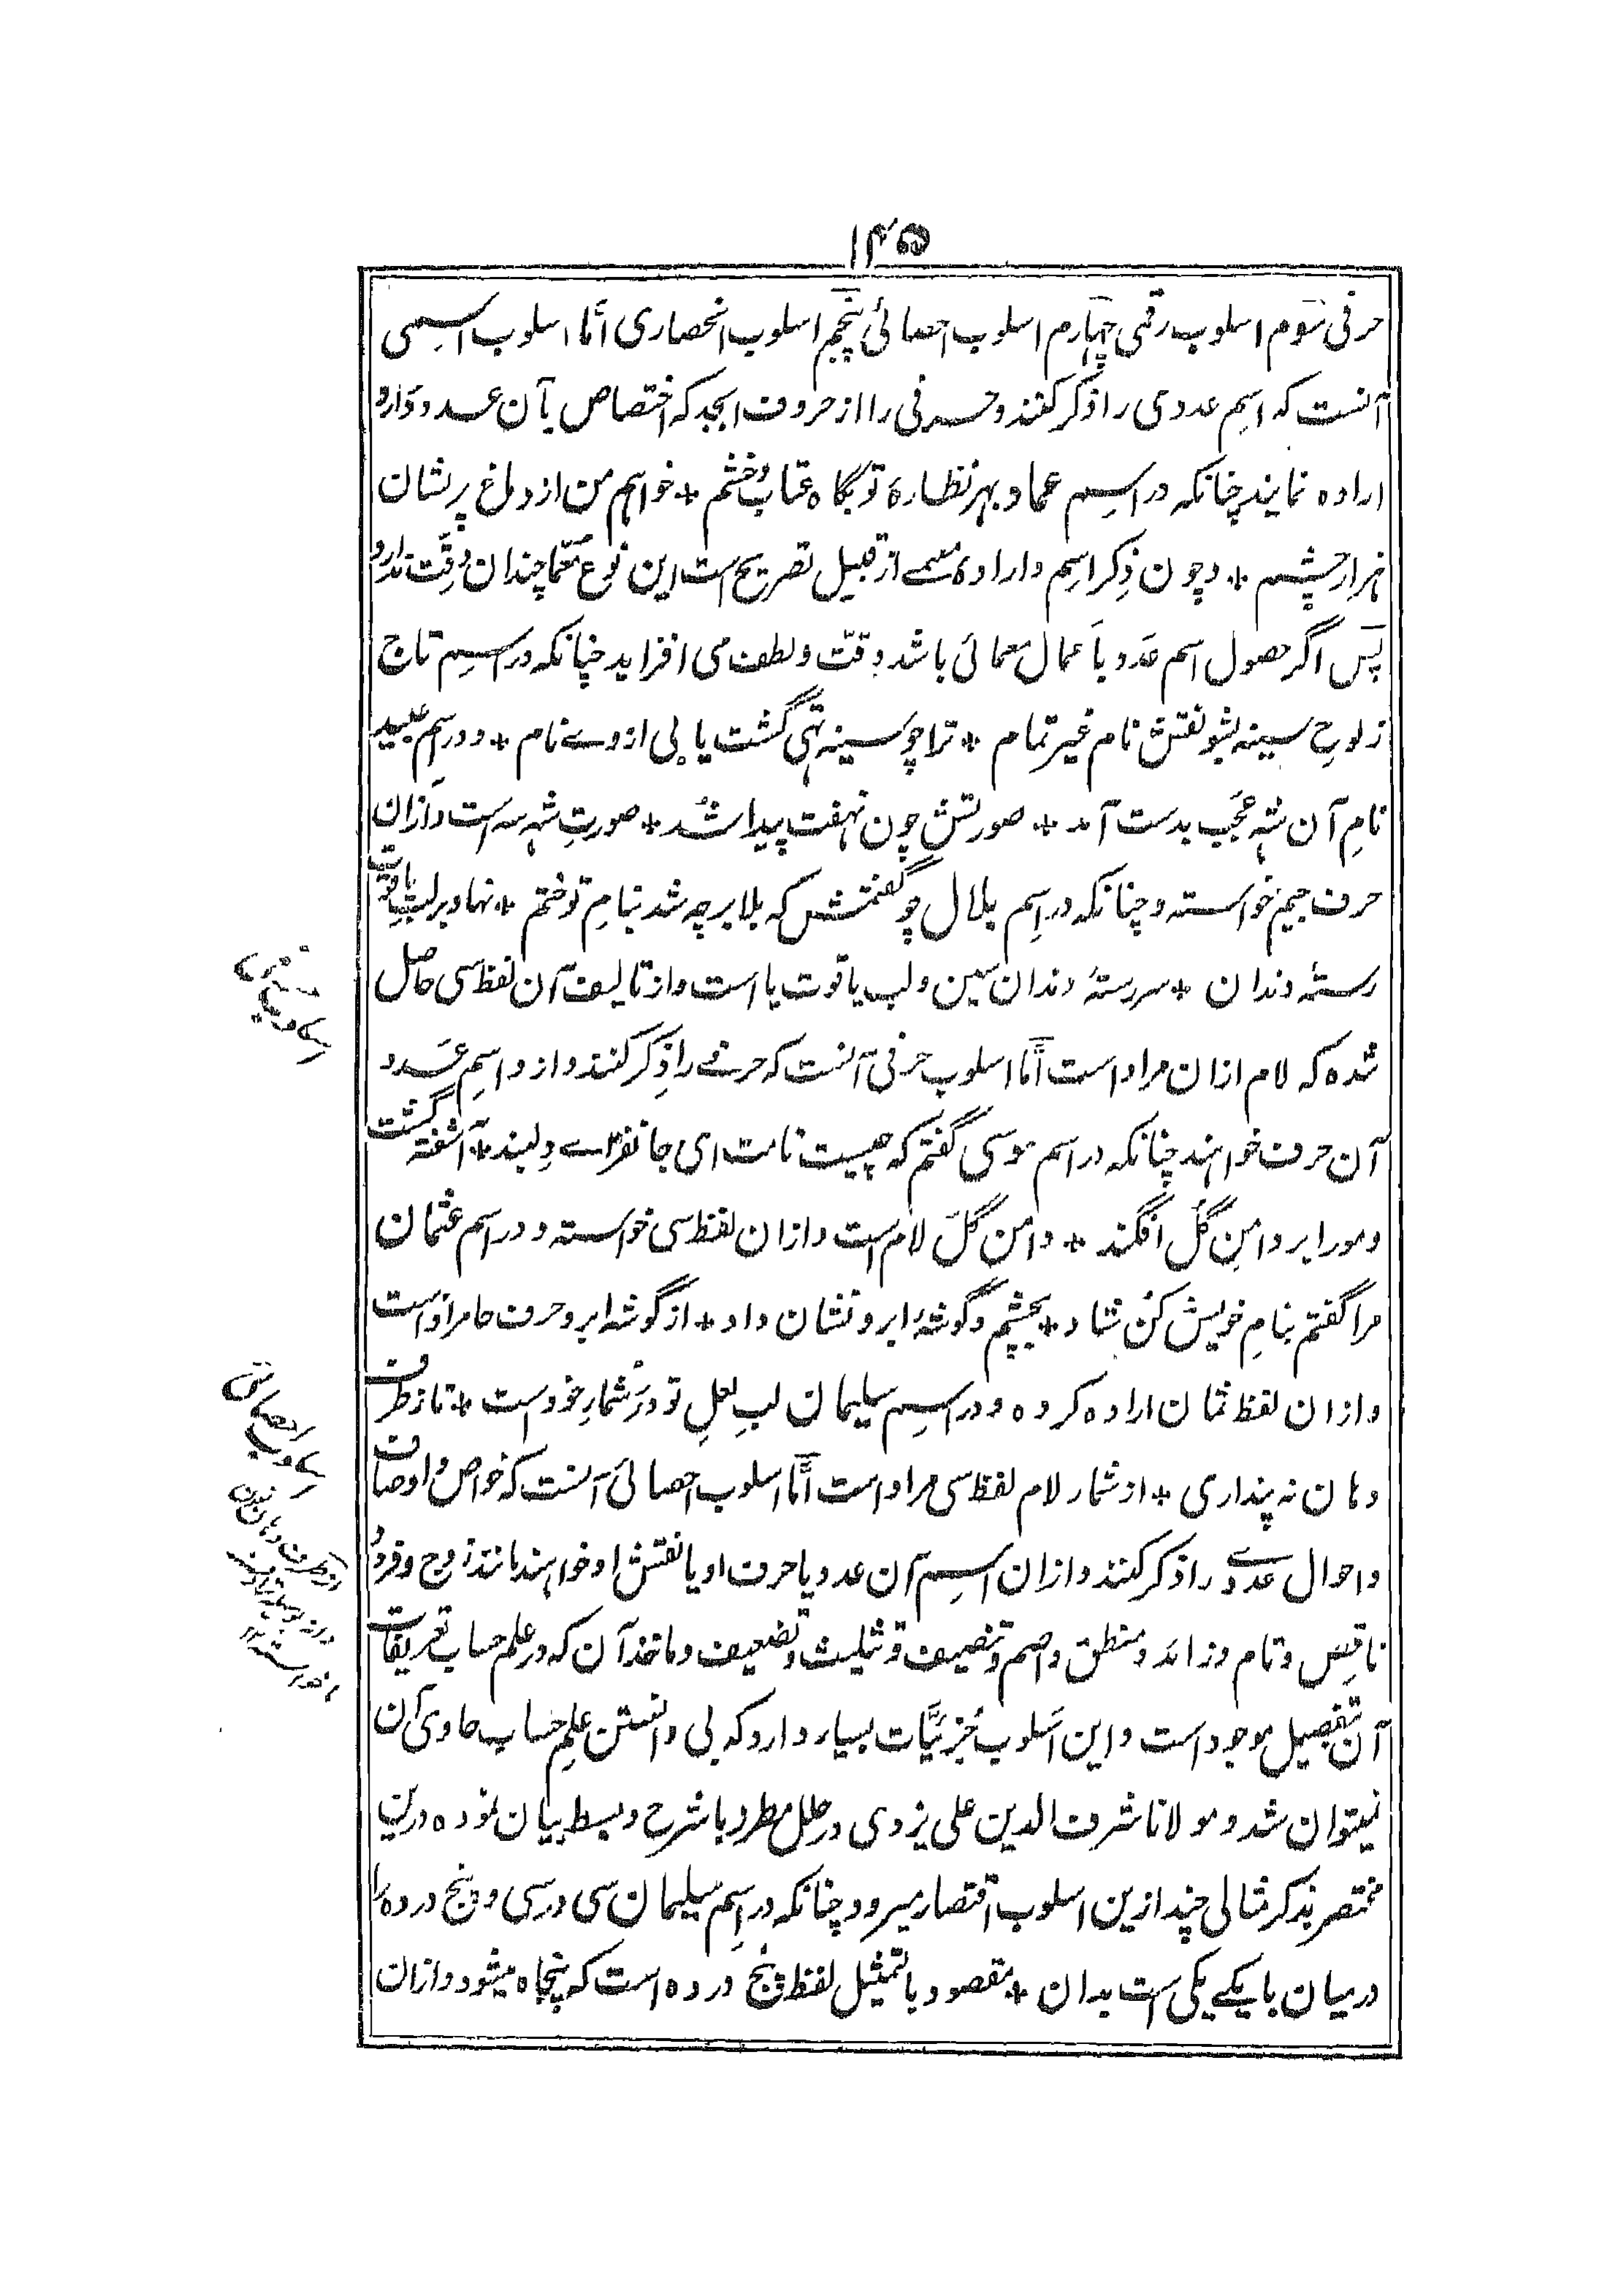 ۱۴۵
حرفی سوم اسلوب رقمی چهارم اسلوب احصائی پنجم اسلوب انحصاری اما اسلوب اسمی
آنست که اسم عددی را ذکر کنند و حرفی را از حروف ابجد که اختصاص بآن عدد دارد
اراده نمایند چنانکه در اسم عماد بهر نظارهٔ تو بگاه عتاب و خشم * خواهم من از دماغ پریشان
هزار چشم * و چون ذکر اسم و ارادهٔ مسمے از قبیل تصریح است این نوع معما چندان دقت ندارد
پس اگر حصول اسم عدد باعمال معمائی باشد دقت و لطف می افزاید چنانکه در اسم تاج
ز لوح سینه بشو نقش نام غیر تمام * ترا چو سینه تهی گشت یا بی ازوے نام * و در اسم عبید
نام آن شه عجب بدست آمد * صورتش چون نهفت پیدا شد * صورت شه سه است و ازان
حرف جیم خواسته و چنانکه در اسم بلال چو گفتمش که بلا بر چه شد بنام تو ختم * نهاد بر لب یاقوت
رستهٔ دندان * سر رستهٔ دندان سین و لب یاقوت یا است و از تالیف آن لفظ سی حاصل
شده که لام ازان مراد است اما اسلوب حرفی آنست که حرفے را ذکر کنند و از و اسم عدد
آن حرف خواهند چنانکه در اسم موسی گفتم که چیست نامت ای جانفزاے دلبند * آشفته گشت
و مو را بر دامن گل افگند * دامن گل لام است و ازان لفظ سی خواسته و در اسم عثمان
مرا گفتم بنام خویش کن شاد * بچشم و گوشهٔ ابرو نشان داد * از گوشه ابرو حرف حا مراد است
و ازان لفظ ثمان اراده کرده و در اسم سلیمان لب لعل تو در شمار خود است * تا ز طرف
دهان نه پنداری * از شمار لام لفظ سی مراد است اما اسلوب احصائی آنست که خواص و اوصاف
و احوال عددے را ذکر کنند و ازان اسم آن عدد یا حرف او یا نقش او خواهند مانند زوج و فرد و
ناقص و تام و زائد و منطق و اصم و تنصیف و تثلیث و تضعیف و مانند آن که در علم حساب تعریفات
آن بتفصیل موجود است و این اسلوب جزئیات بسیار دارد که بی دانستن علم حساب حاوی آن
نمیتوان شد و مولانا شرف الدین علی یزدی در حلل مطرز با شرح و بسط بیان نموده درین
مختصر بذکر مثالی چند ازین اسلوب اقتصار میرود چنانکه در اسم سلیمان سی در سی و پنج در ده را
در میان با یکے یکی است بدان * مقصود بالتمثیل لفظ پنج در ده است که پنجاه میشود و ازان